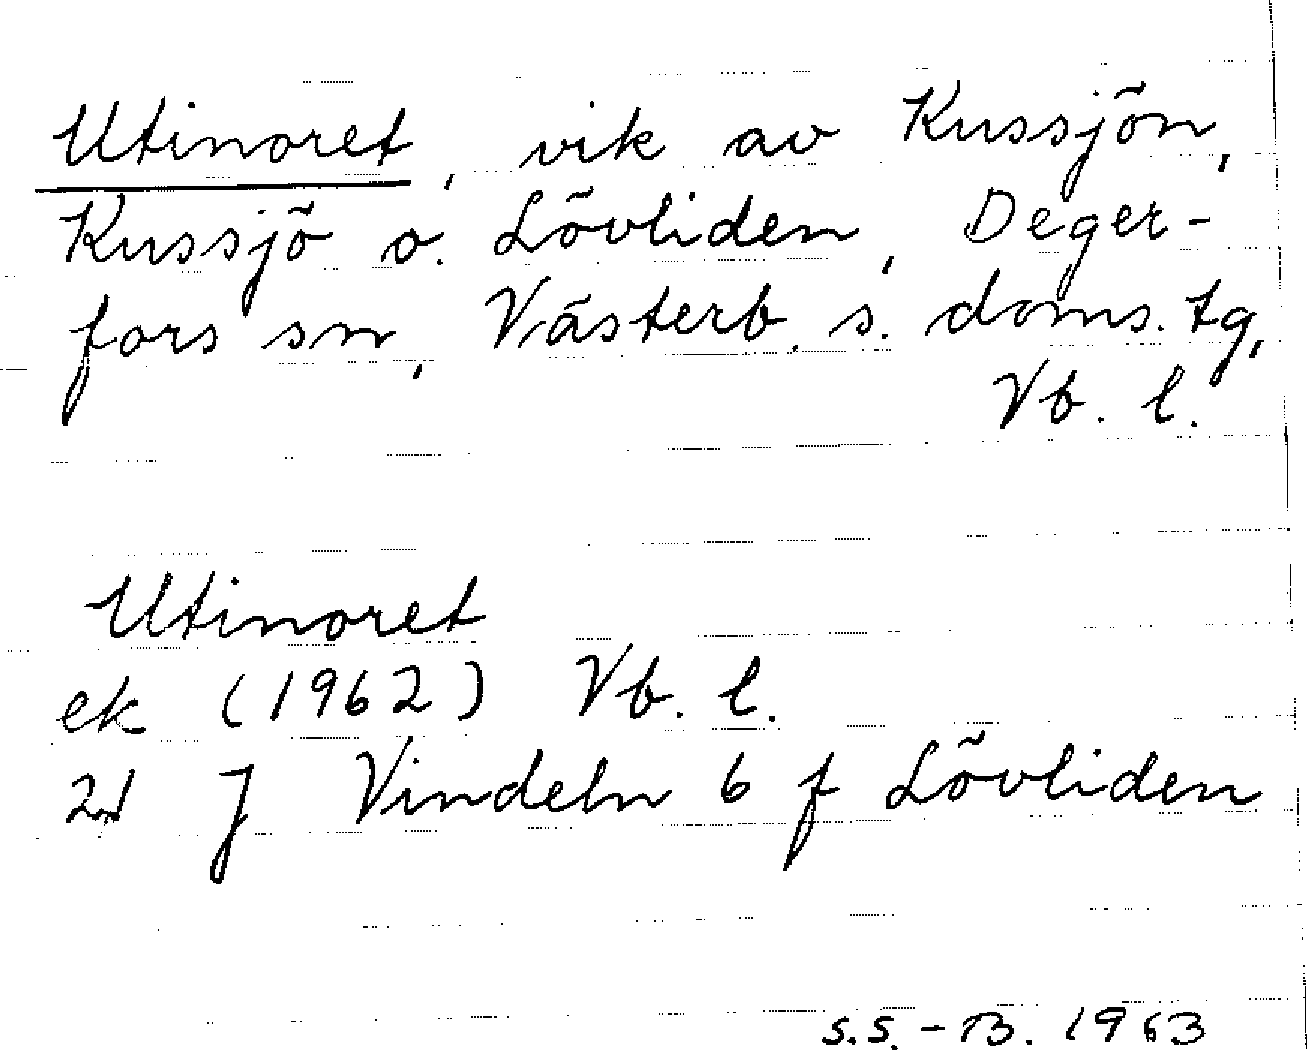 Utinoret, vik av Kussjön,
Kussjö o. Lövliden, Deger-
fors sn, Västerb. s. doms. tg,
Vb. l.
Utinoret
ek (1962) Vb. l.
21 J Vindeln 6 f Lövliden
S.S. - B. 1963